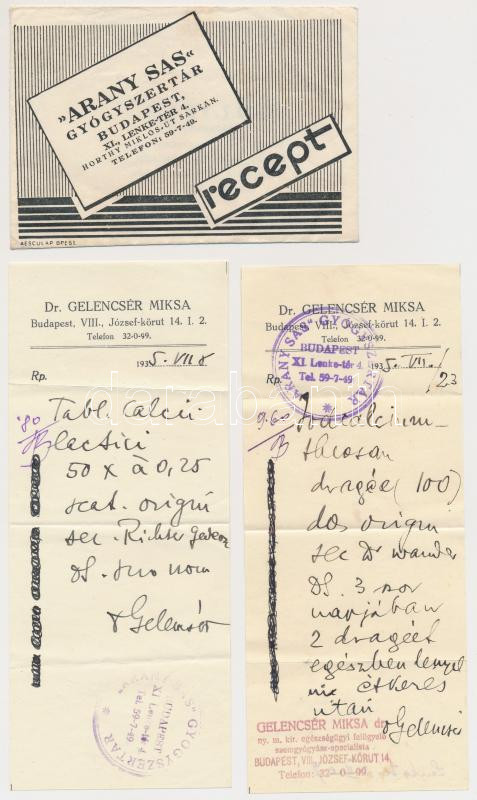 »ARANY SAS«
GYÓGYSZERTÁR
BUDAPEST,
XI., LENKE-TÉR 4.
HORTHY MIKLÓS-ÚT SARKÁN.
TELEFON: 59-7-49.
recept
AESCULAP BPEST.
Dr. GELENCSÉR MIKSA
Budapest, VIII., József-körut 14. I. 2.
Telefon 32-0-99.
1935. VII 8
Rp.
'80
Tabl. Calcii
lactici
50 x à 0,25
scat. origin
sec. Richter Gedeon
DS. suo nom
dr Gelencsér
"ARANY SAS" GYÓGYSZERTÁR
BUDAPEST
XI. Lenke-tér 4
Tel. 59-7-49
Dr. GELENCSÉR MIKSA
Budapest, VIII., József-körut 14. I. 2.
Telefon 32-0-99.
"ARANY SAS" GYÓGYSZERTÁR
BUDAPEST
XI. Lenke-tér 4
Tel. 59-7-49
1935. VII.
Rp.
/23
9.60
dragée (100)
dos origin
sec Dr wander
DS. 3 szor
napjában
2 dragéet
egészben lenyel
ni étkezés
után
dr Gelencsér
GELENCSÉR MIKSA dr.
ny. m. kir. egészségügyi felügyelő
szemgyógyász-specialista
BUDAPEST, VIII, JÓZSEF-KÖRUT 14
Telefon: 32-0-99